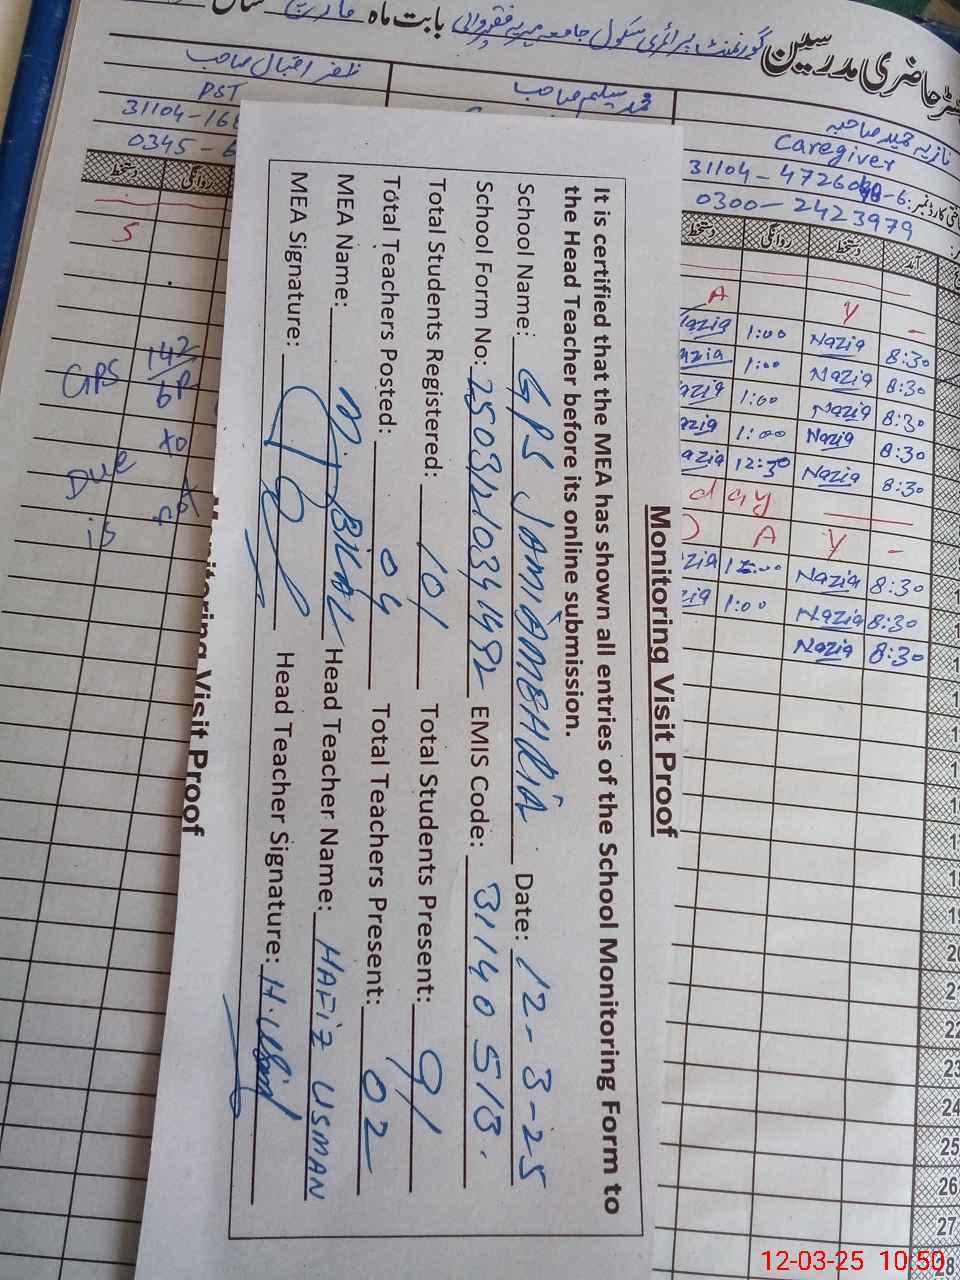 رجسٹر حاضری مدرسین گورنمنٹ پرائمری سکول جامعہ مہریہ فقیر والی بابت ماہ مارچ
نازیہ حمید صاحبہ
Caregiver
31104-4726098-6
0300-2423979
محمد سلیم صاحب
ظفر اقبال صاحب
PST
31104-166
0345-6
آمد دستخط روانگی دستخط
روانگی دستخط
- y A
8:30 Nazia 1:00 Nazia
8:30 Nazia 1:00 Nazia
8:30 Nazia 1:00 Nazia
8:30 Nazia 1:00 Nazia
8:30 Nazia 12:30 Nazia
day
- Y A D
8:30 Nazia 12:00 Nazia
8:30 Nazia 1:00 Nazia
8:30 Nazia
S
GPS
Due
is
142
6P
to
Monitoring Visit Proof
It is certified that the MEA has shown all entries of the School Monitoring Form to
the Head Teacher before its online submission.
School Name: GPS JAMIA MEHRIA Date: 12-3-25
School Form No: 2503121034492 EMIS Code: 31140513.
Total Students Registered: 101 Total Students Present: 91
Total Teachers Posted: 04 Total Teachers Present: 02
MEA Name: M. BILAL Head Teacher Name: HAFIZ USMAN
MEA Signature: Head Teacher Signature: H. Usman
Monitoring Visit Proof
20
21
22
23
24
25
26
27
28
12-03-25 10:50